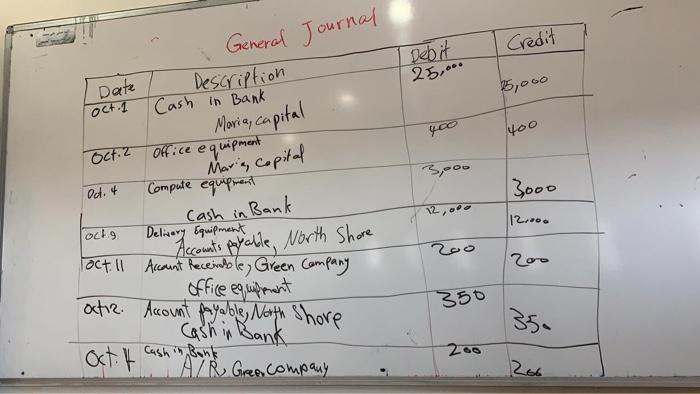 General Journal
Date Description Debit Credit
Oct.1 Cash in Bank 25,000
Maria, Capital 25,000
Oct.2 Office equipment 400
Maria, Capital 400
Oct. 4 Compute equipment 3,000
Cash in Bank 3,000
Oct.9 Delivary Equipment 12,000
Accounts payable, North Shore 12,000
Oct. 11 Account Receivable, Green Company 200
office equipment 200
Oct 12. Account payable, North Shore 350
Cash in Bank 350
Oct. Cash in Bank 200
A/R, Green company 200